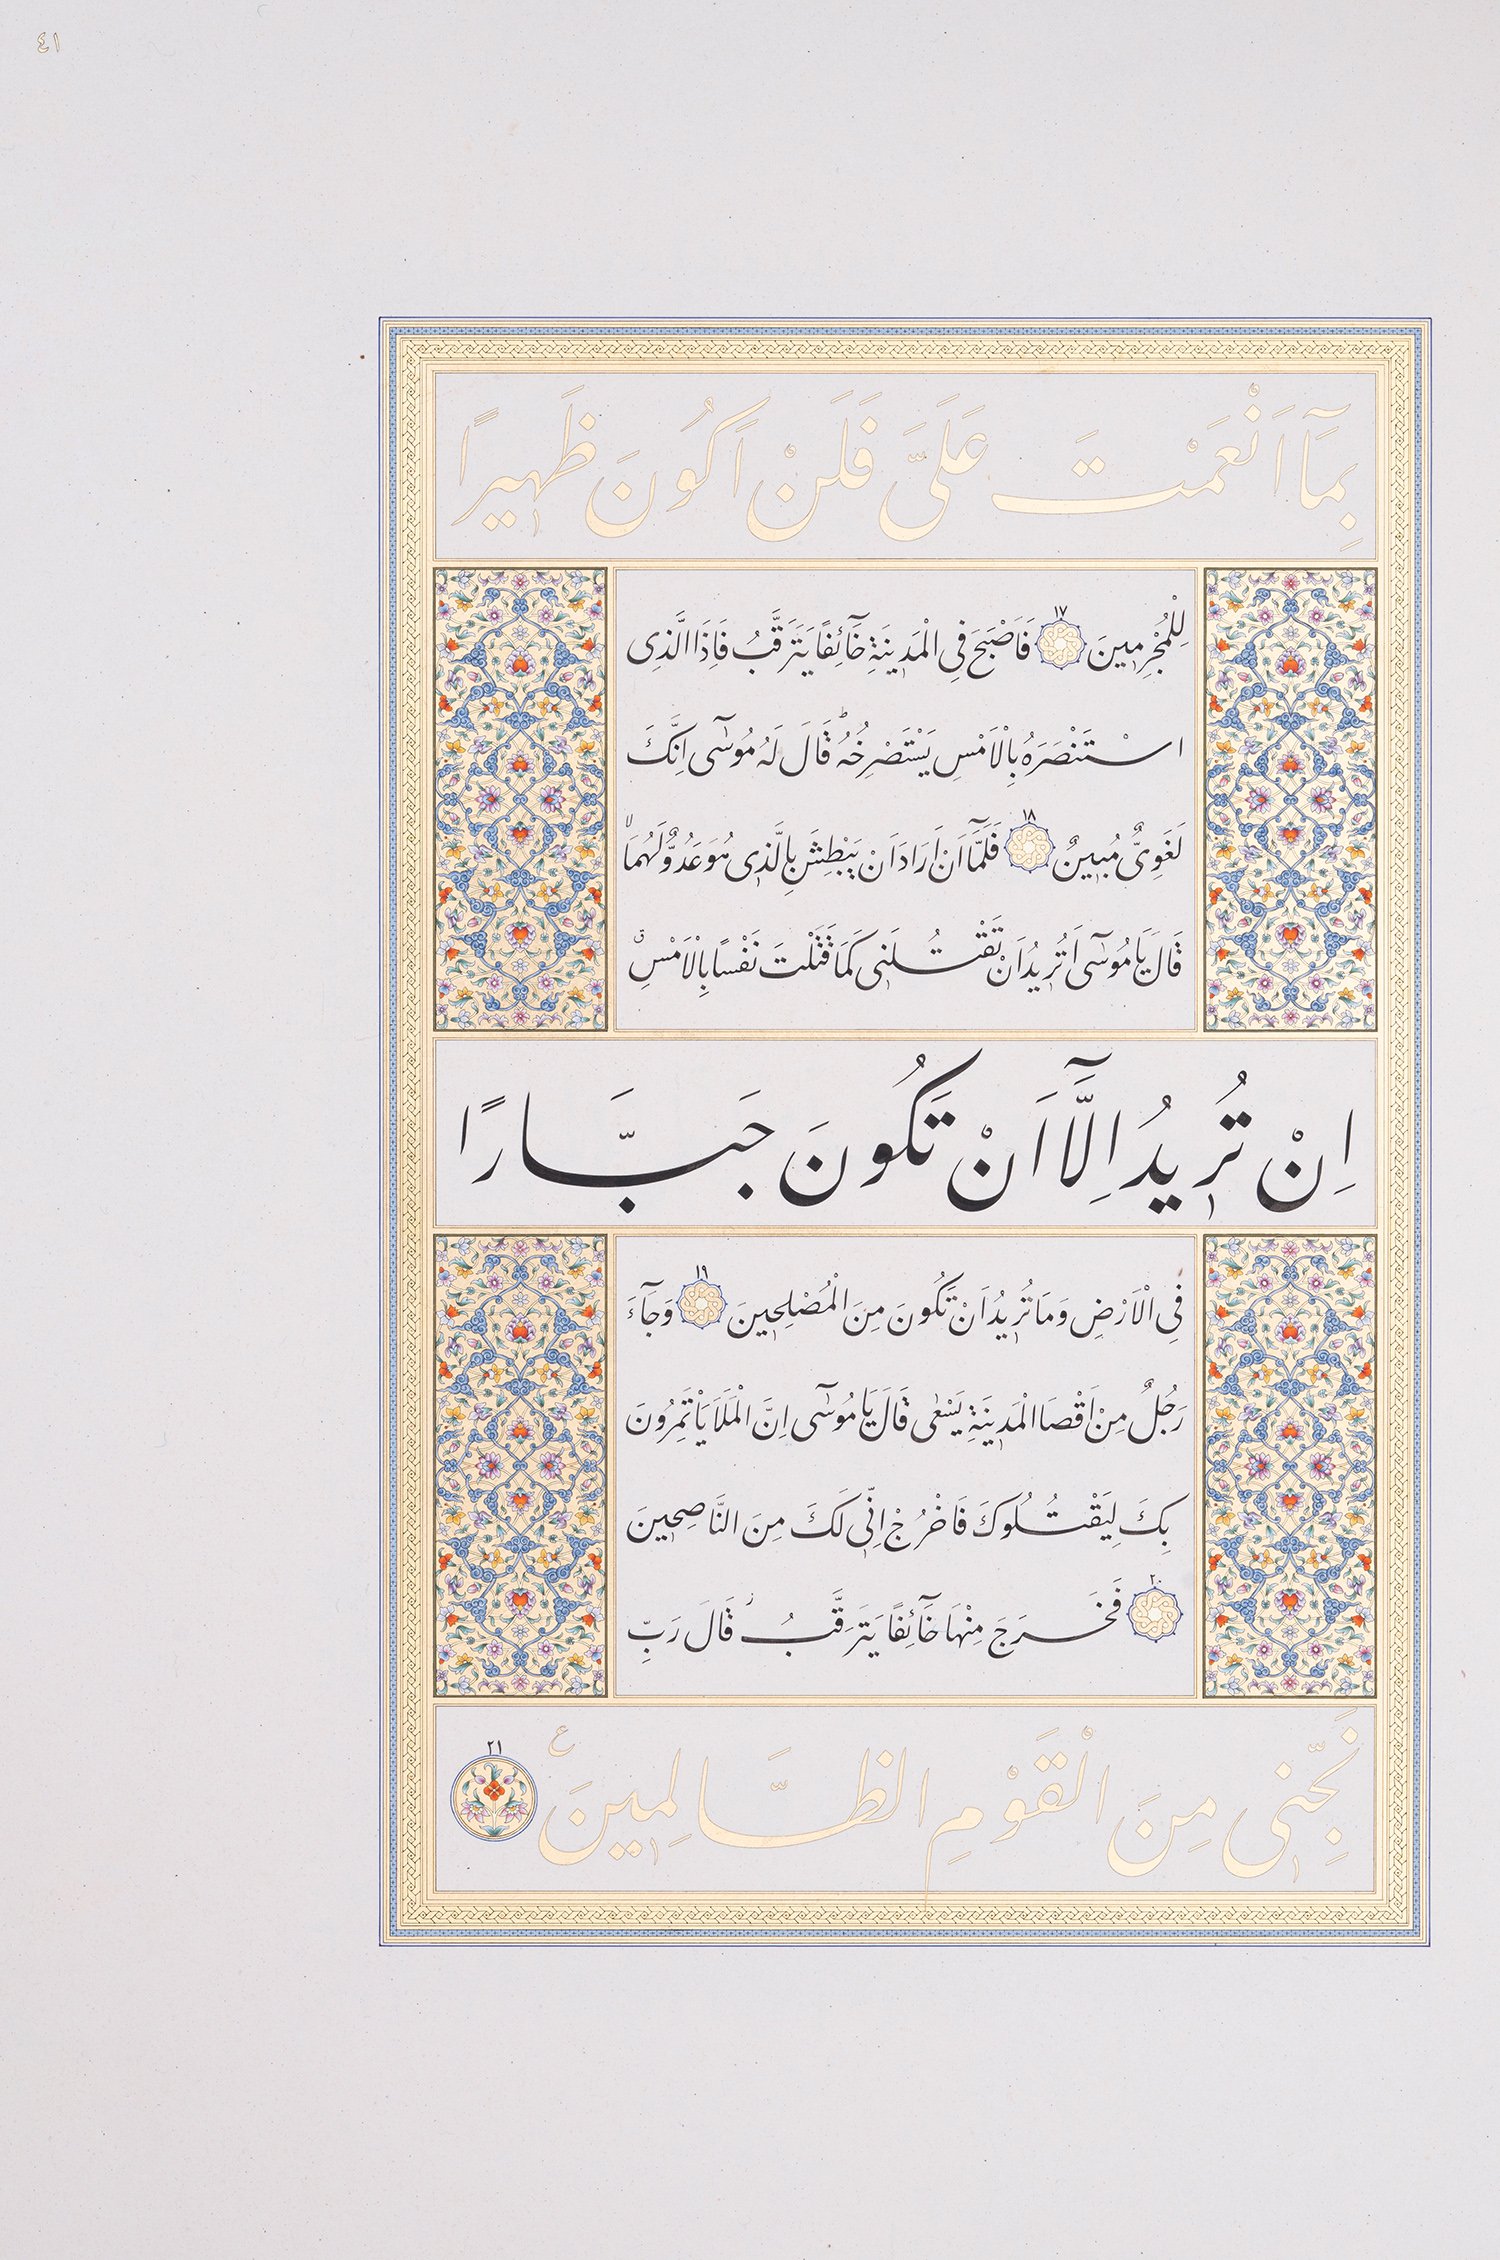 ٤١
بِمَٓا اَنْعَمْتَ عَلَىَّ فَلَنْ اَكُونَ ظَهِيرًا
لِلْمُجْرِمِينَ ١٧ فَاَصْبَحَ فِى الْمَدِينَةِ خَٓائِفًا يَتَرَقَّبُ فَاِذَا الَّذِى
اسْتَنْصَرَهُ بِالْاَمْسِ يَسْتَصْرِخُهُۜ قَالَ لَهُ مُوسٰٓى اِنَّكَ
لَغَوِىٌّ مُبِينٌ ١٨ فَلَمَّٓا اَنْ اَرَادَ اَنْ يَبْطِشَ بِالَّذِى هُوَ عَدُوٌّ لَهُمَاۙ
قَالَ يَا مُوسٰٓى اَتُرِيدُ اَنْ تَقْتُلَنِى كَمَا قَتَلْتَ نَفْسًا بِالْاَمْسِۗ
اِنْ تُرِيدُ اِلَّٓا اَنْ تَكُونَ جَبَّارًا
فِى الْاَرْضِ وَمَا تُرِيدُ اَنْ تَكُونَ مِنَ الْمُصْلِحِينَ ١٩ وَجَٓاءَ
رَجُلٌ مِنْ اَقْصَا الْمَدِينَةِ يَسْعٰى قَالَ يَا مُوسٰٓى اِنَّ الْمَلَاَ يَاْتَمِرُونَ
بِكَ لِيَقْتُلُوكَ فَاخْرُجْ اِنِّى لَكَ مِنَ النَّاصِحِينَ
٢٠ فَخَرَجَ مِنْهَا خَٓائِفًا يَتَرَقَّبُۘ قَالَ رَبِّ
نَجِّنِى مِنَ الْقَوْمِ الظَّالِمِينَ ع ٢١